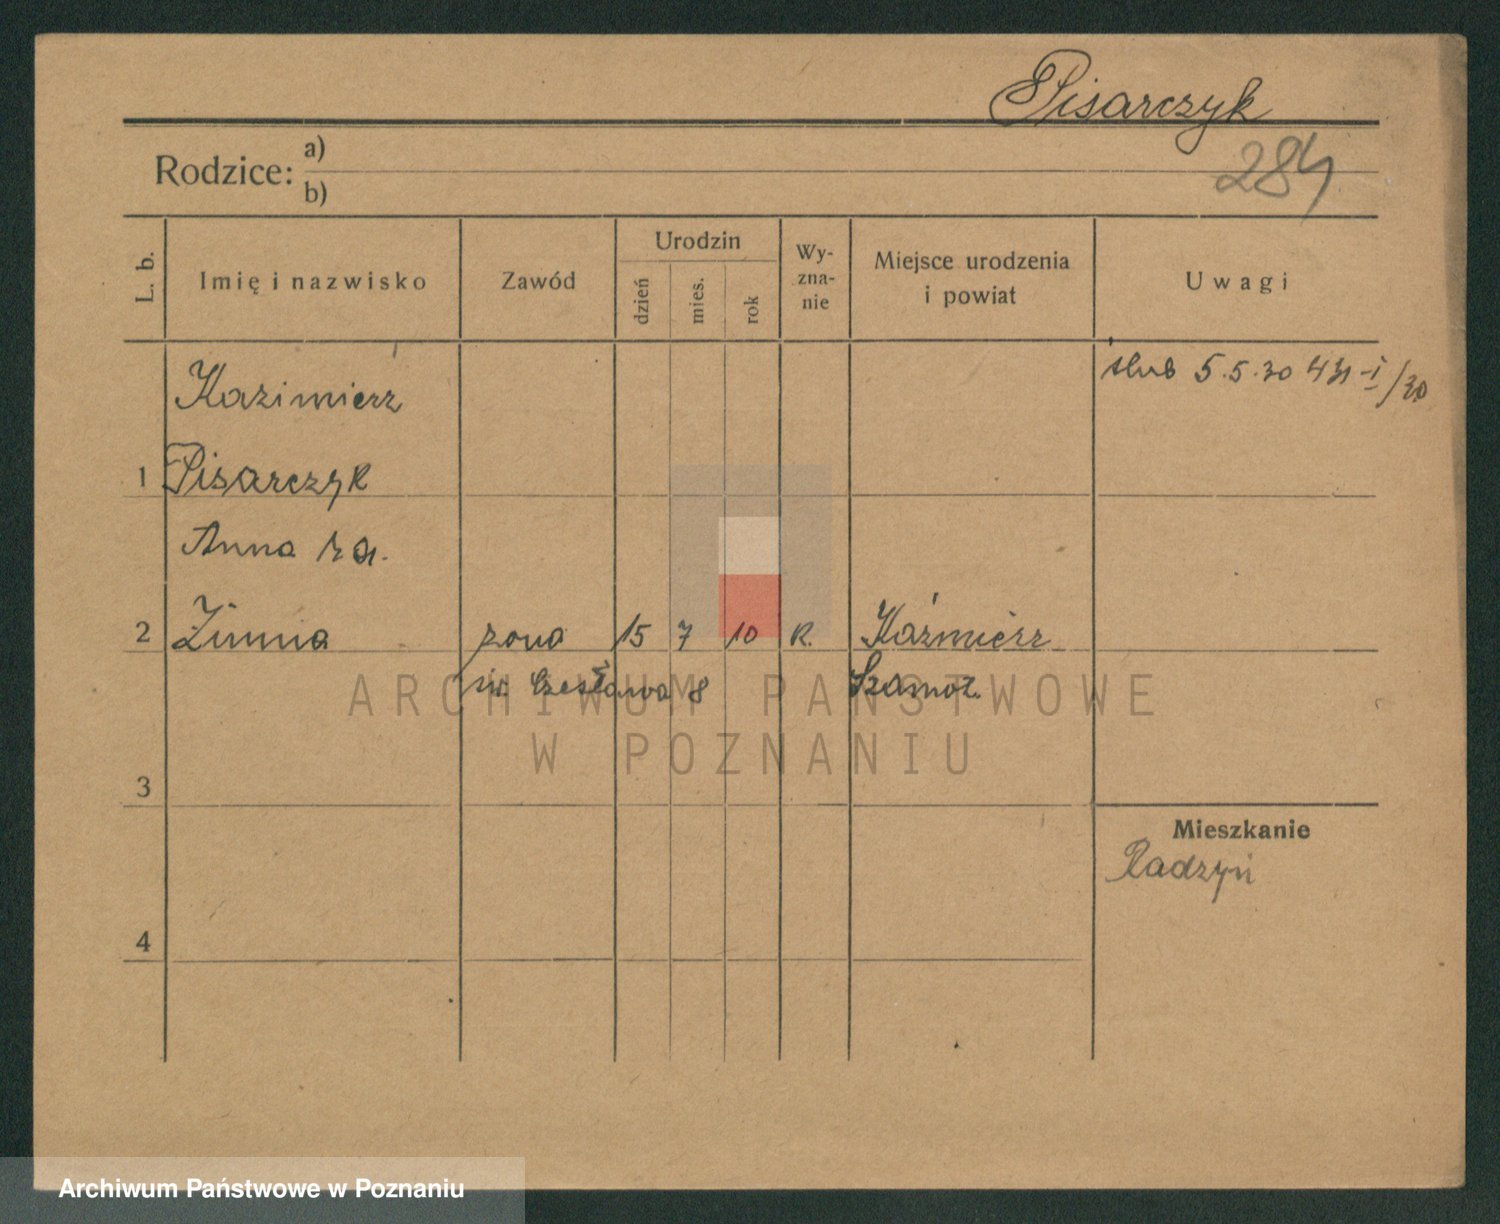 Pisarczyk
Rodzice: a)
b)
284
L. b.
Imię i nazwisko
Zawód
Urodzin
dzień
mies.
rok
Wy-
zna-
nie
Miejsce urodzenia
i powiat
Uwagi
Kazimierz
ślub 5.5.30
1 Pisarczyk
Anna
2 Zimna żona 15 7 10 R. Kaźmierz
św. Czesława 8 Szamot.
ARCHIWUM PAŃSTWOWE
W POZNANIU
3
Mieszkanie
Radzyń
4
Archiwum Państwowe w Poznaniu